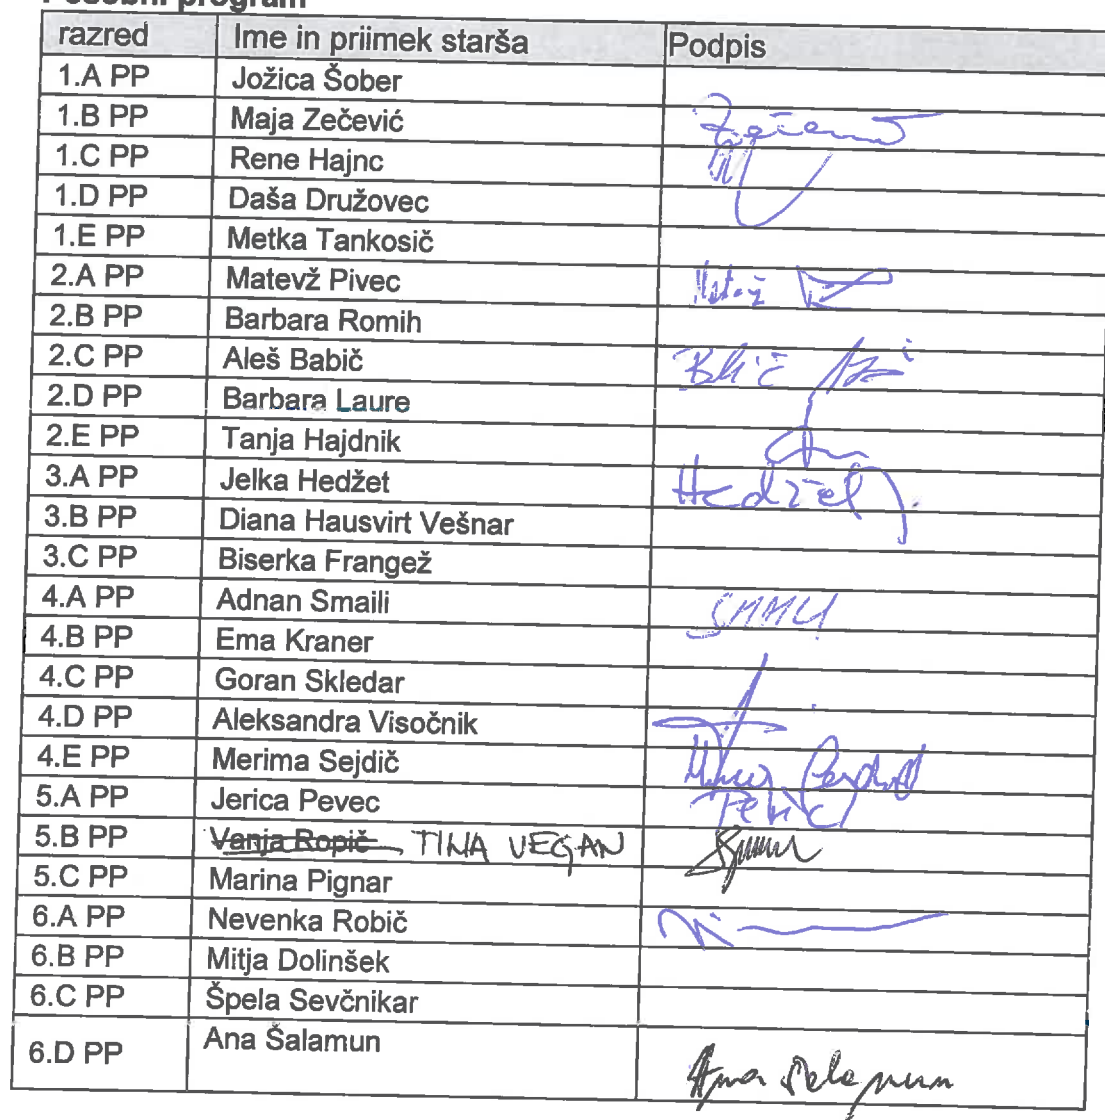 Posebni program
razred Ime in priimek starša Podpis
1.A PP Jožica Šober
1.B PP Maja Zečević
1.C PP Rene Hajnc
1.D PP Daša Družovec
1.E PP Metka Tankosič
2.A PP Matevž Pivec
2.B PP Barbara Romih
2.C PP Aleš Babič
2.D PP Barbara Laure
2.E PP Tanja Hajdnik
3.A PP Jelka Hedžet Hedžet
3.B PP Diana Hausvirt Vešnar
3.C PP Biserka Frangež
4.A PP Adnan Smaili
4.B PP Ema Kraner
4.C PP Goran Skledar
4.D PP Aleksandra Visočnik
4.E PP Merima Sejdič
5.A PP Jerica Pevec
5.B PP Vanja Ropič TINA VEGAN
5.C PP Marina Pignar
6.A PP Nevenka Robič
6.B PP Mitja Dolinšek
6.C PP Špela Sevčnikar
6.D PP Ana Šalamun Ana Šalamun